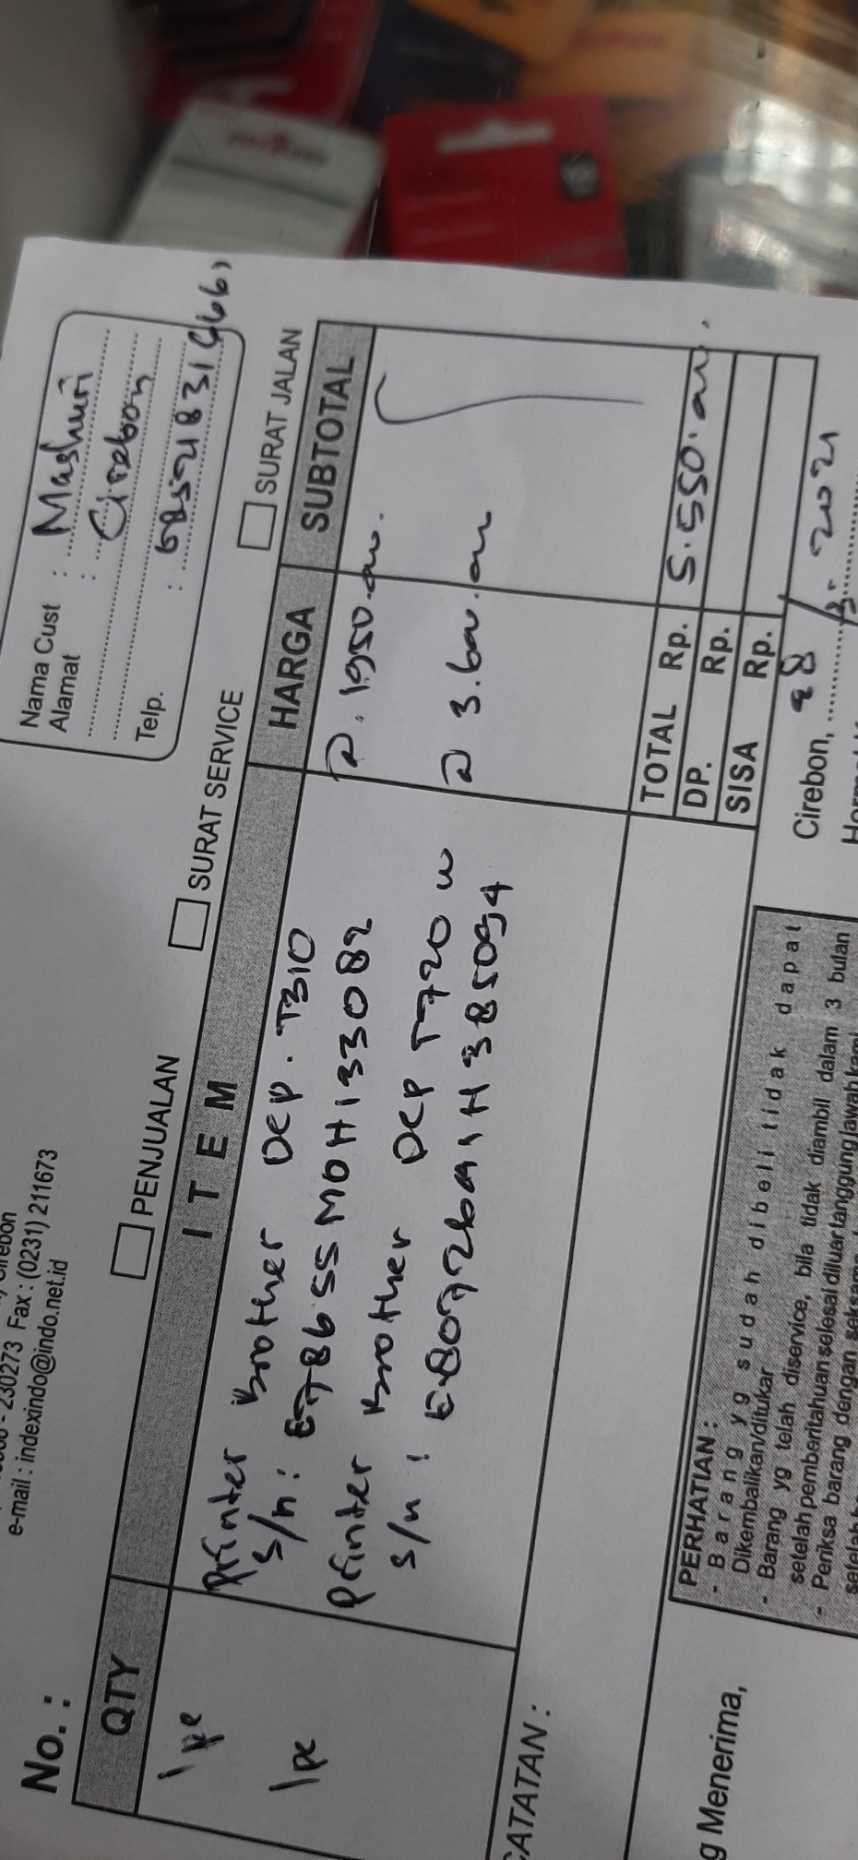 Cirebon
- 230273 Fax : (0231) 211673
e-mail : indexindo@indo.net.id
Nama Cust : Mashuri
Alamat : Cirebon
Telp. :
No. :
PENJUALAN
SURAT SERVICE
SURAT JALAN
QTY ITEM HARGA SUBTOTAL
1 pc Printer Brother DCP. T310 @. 1.950.000.
S/n : E78655M0H133082
1 pc Printer Brother DCP T720 W @ 3.600.000
S/n :
CATATAN :
TOTAL Rp. 5.550.000.
DP. Rp.
SISA Rp.
Cirebon, 28/ - 2021
PERHATIAN :
- Barang yg sudah dibeli tidak dapat
Dikembalikan/ditukar
- Barang yg telah diservice, bila tidak diambil dalam 3 bulan
setelah pemberitahuan selesai diluar tanggung jawab kami
- Periksa barang dengan
g Menerima,